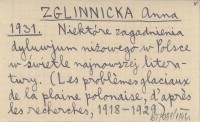 ZGLINNICKA Anna
1931. Niektóre zagadnienia
dyluwjum niżowego w Polsce
w świetle najnowszej litera-
tury. (Les problèmes glaciaux
de la plaine polonaise, d'après
les recherches, 1918-1929).